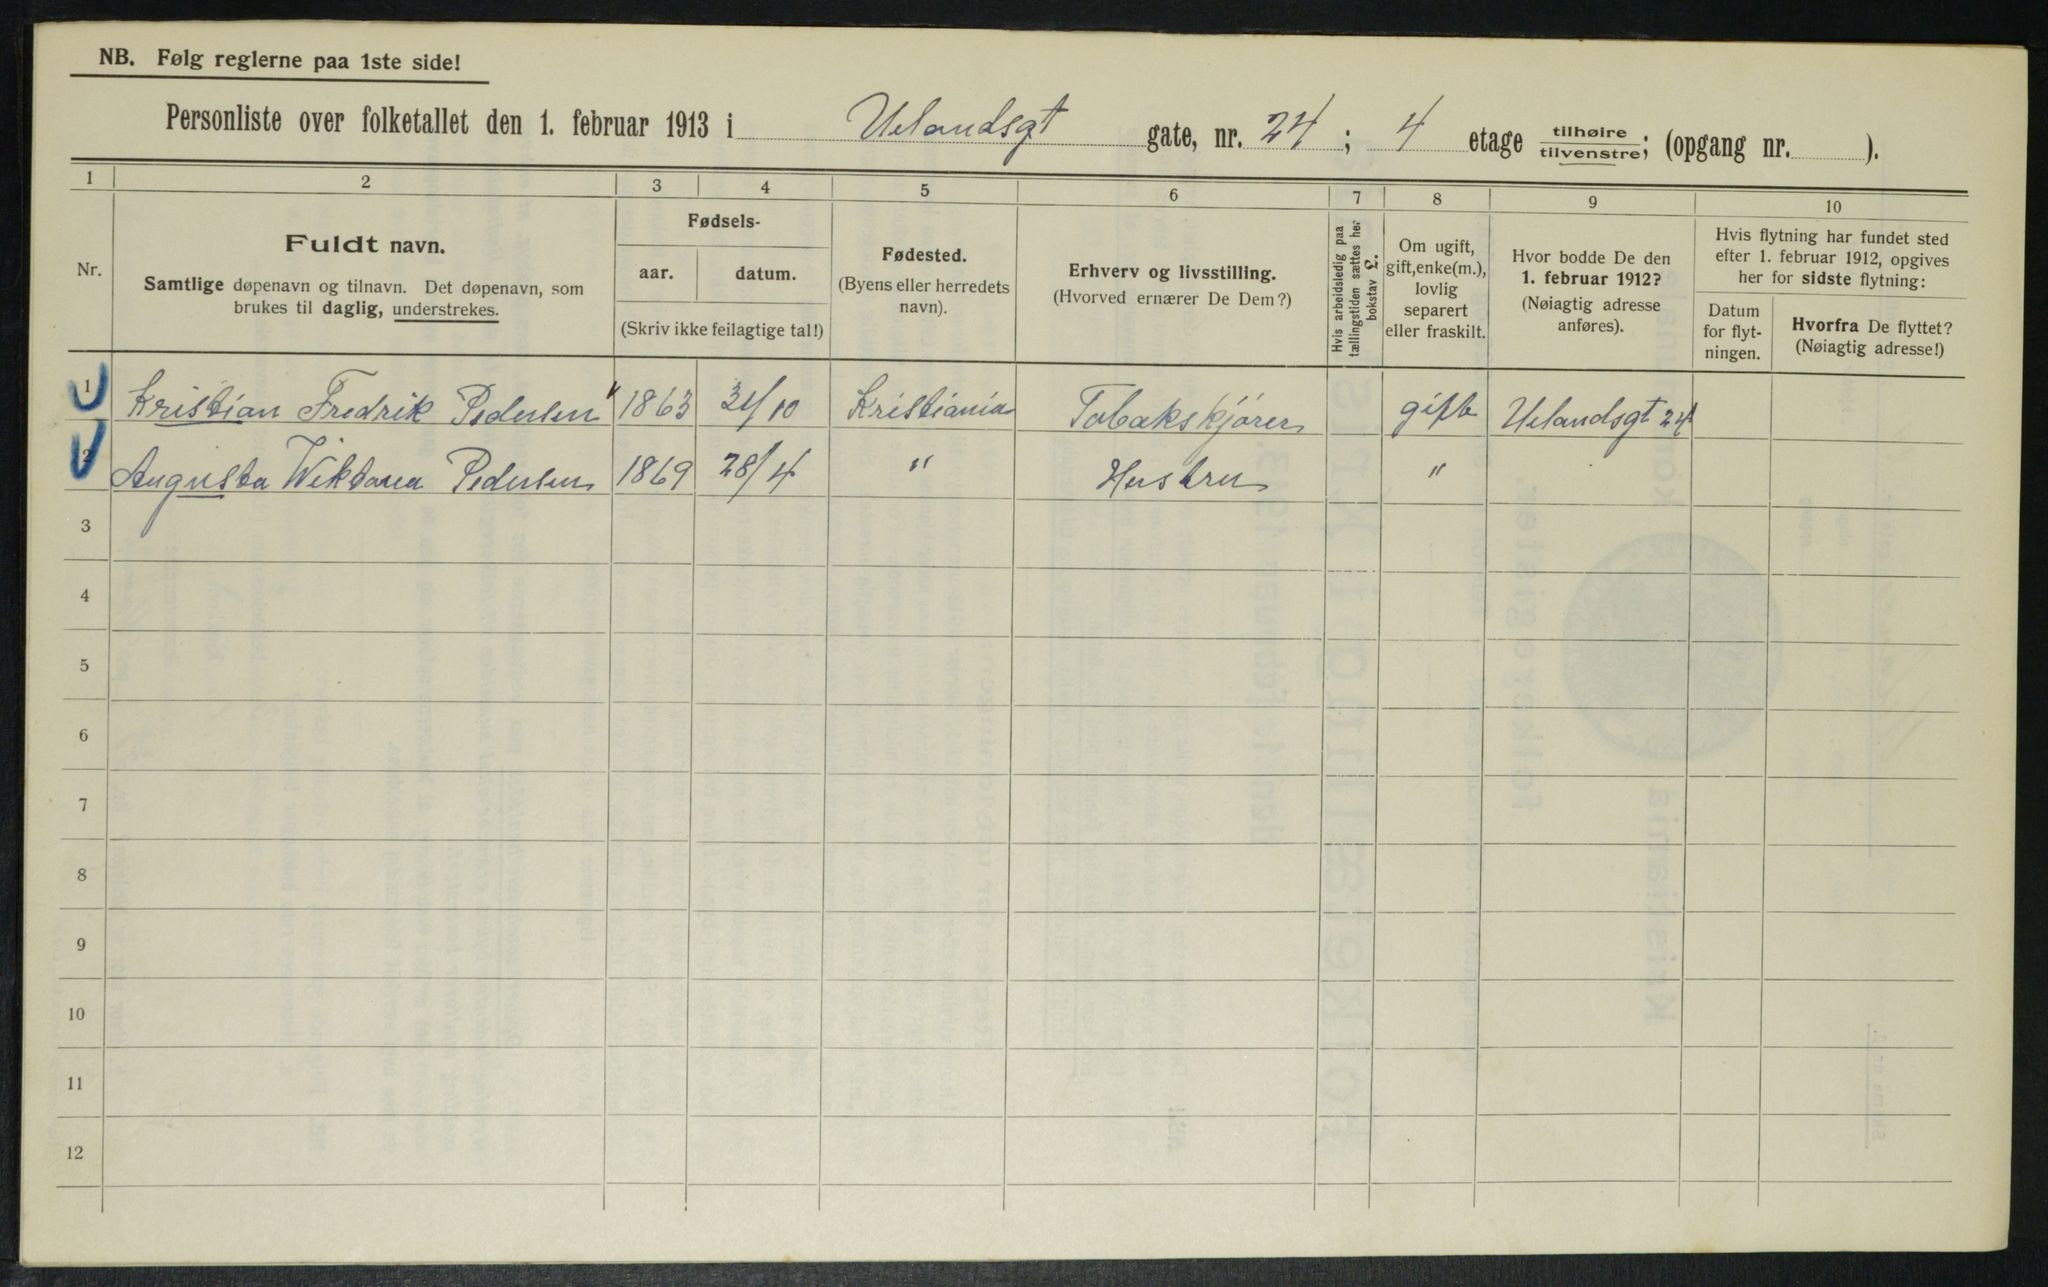 NB. Følg reglerne paa 1ste side!
Personliste over folketallet den 1. februar 1913 i Uelandsgt gate, nr. 24 ; 4 etage tilhøire tilvenstre; (opgang nr. ).
1 2 3 4 5 6 7 8 9 10
Nr.
Fuldt navn.
Samtlige døpenavn og tilnavn. Det døpenavn, som
brukes til daglig, understrekes.
Fødsels-
aar. datum.
(Skriv ikke feilagtige tal!)
Fødested.
(Byens eller herredets
navn).
Erhverv og livsstilling.
(Hvorved ernærer De Dem?)
Hvis arbeidsledig paa
tællingstiden sættes her
bokstav L.
Om ugift,
gift, enke(m.),
lovlig
separert
eller fraskilt.
Hvor bodde De den
1. februar 1912?
(Nøiagtig adresse
anføres).
Hvis flytning har fundet sted
efter 1. februar 1912, opgives
her for sidste flytning:
Datum
for flyt-
ningen.
Hvorfra De flyttet?
(Nøiagtig adresse!)
1 Kristian Fredrik Pedersen 1863 31/10 Kristiania Tobakskjører gift Uelandsgt 24
2 Augusta Wiktoria Pedersen 1869 28/4 " Hustru "
3
4
5
6
7
8
9
10
11
12